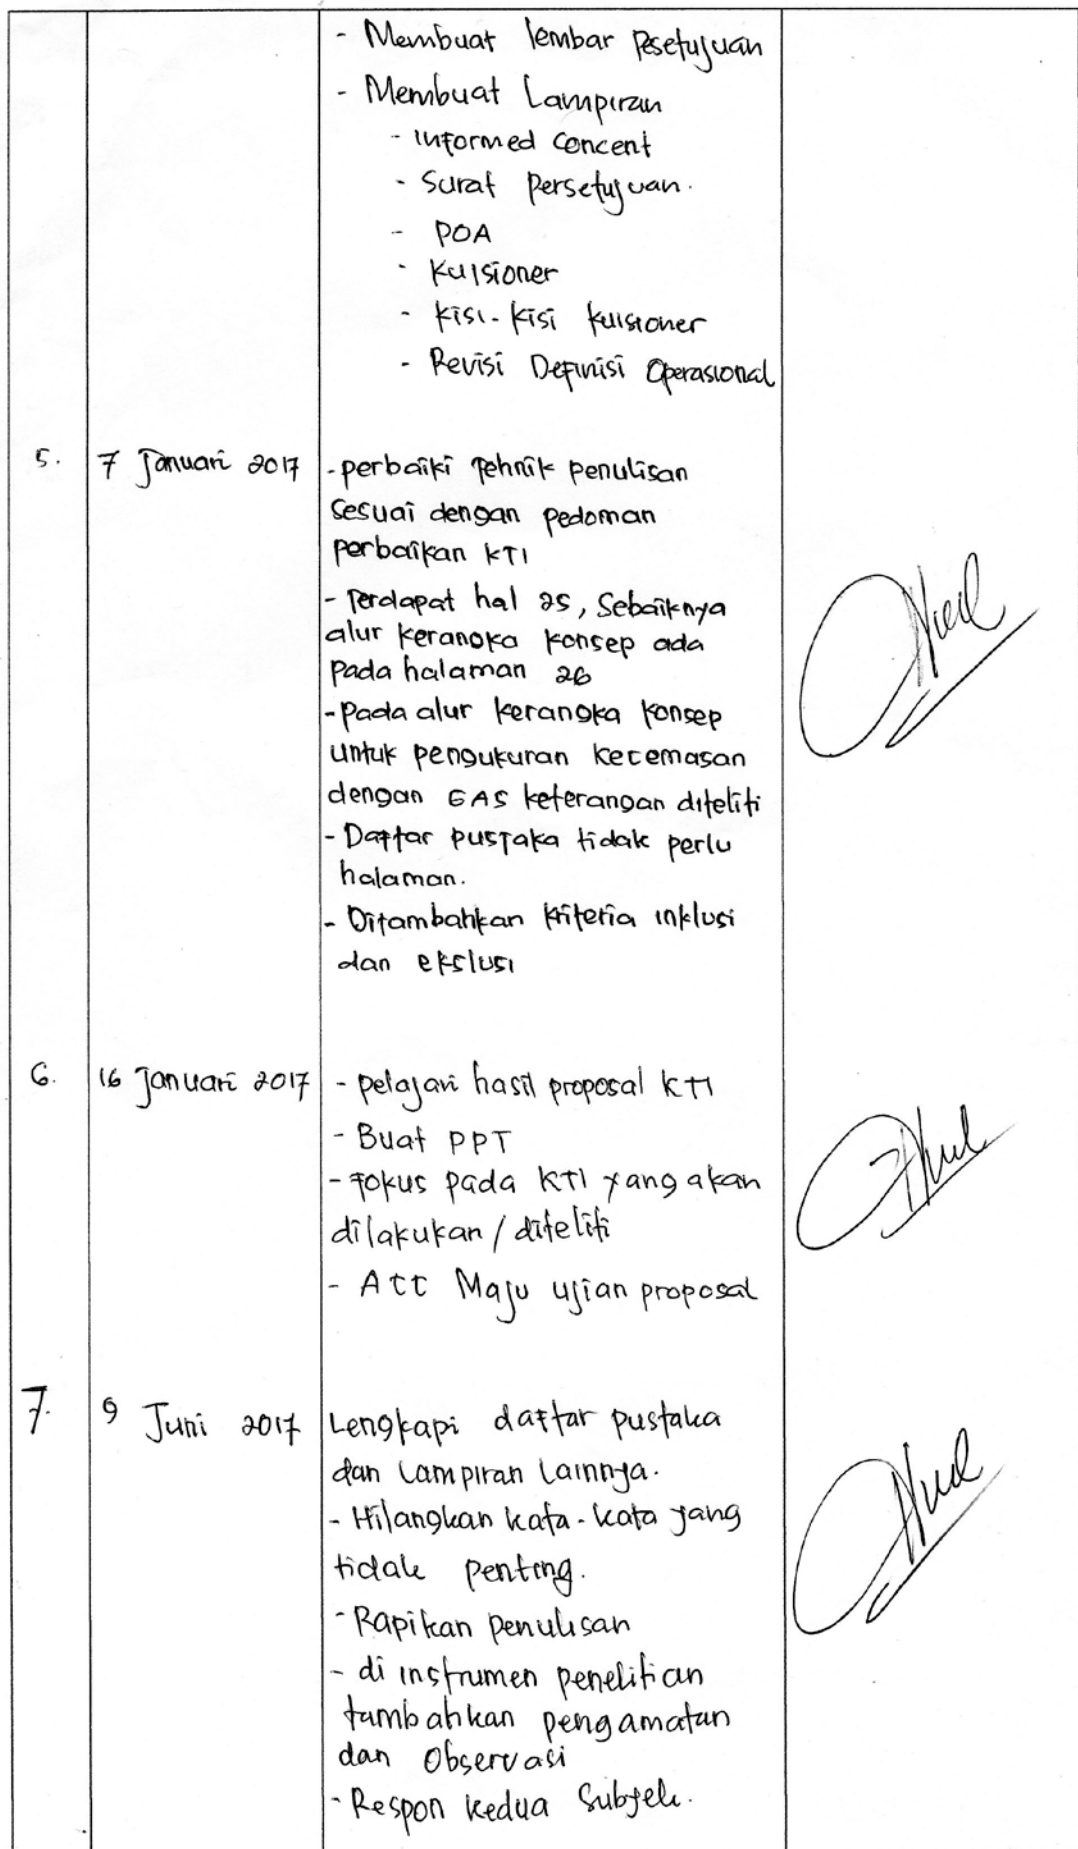 - Membuat lembar Pesetujuan
- Membuat Lampiran
- Informed Concent
- Surat Persetujuan.
- POA
- Kuisioner
- Kisi-Kisi Kuisioner
- Revisi Definisi Operasional
5. 7 Januari 2017 - perbaiki Tehnik penulisan
Sesuai dengan pedoman
perbaikan KTI
- Terdapat hal 25, Sebaiknya
alur kerangka konsep ada
pada halaman 26
- pada alur kerangka konsep
untuk pengukuran kecemasan
dengan GAS keterangan diteliti
- Daftar pustaka tidak perlu
halaman.
- Ditambahkan kriteria inklusi
dan ekslusi
6. 16 Januari 2017 - pelajari hasil proposal KTI
- Buat PPT
- Fokus pada KTI yang akan
dilakukan / diteliti
- Acc Maju ujian proposal
7. 9 Juni 2017 Lengkapi daftar pustaka
dan Lampiran Lainnya.
- Hilangkan kata-kata yang
tidak penting.
- Rapikan penulisan
- di instrumen penelitian
tambahkan pengamatan
dan Observasi
- Respon kedua Subjek.